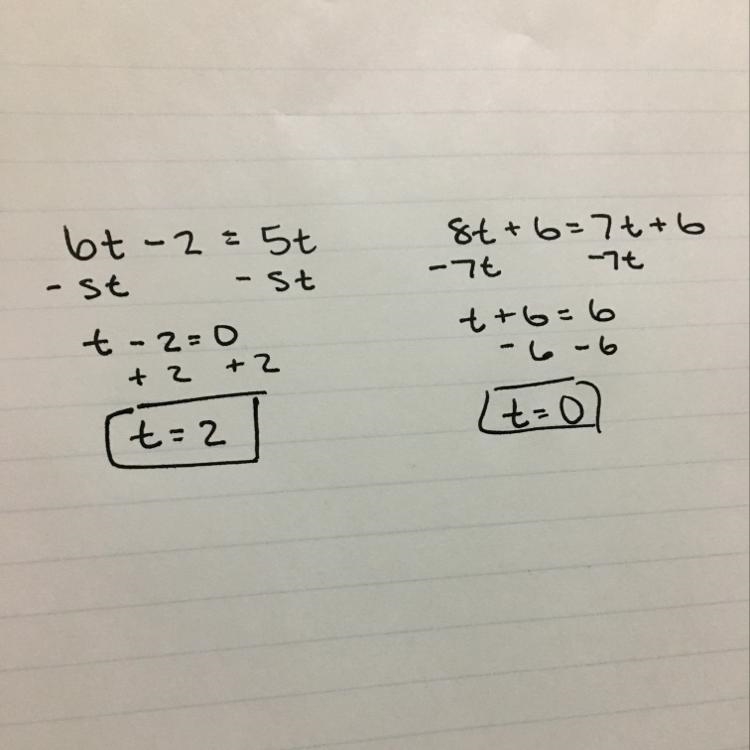 6t - 2 = 5t
- 5t - 5t
t - 2 = 0
+ 2 + 2
t = 2
8t + 6 = 7t + 6
- 7t - 7t
t + 6 = 6
- 6 - 6
t = 0